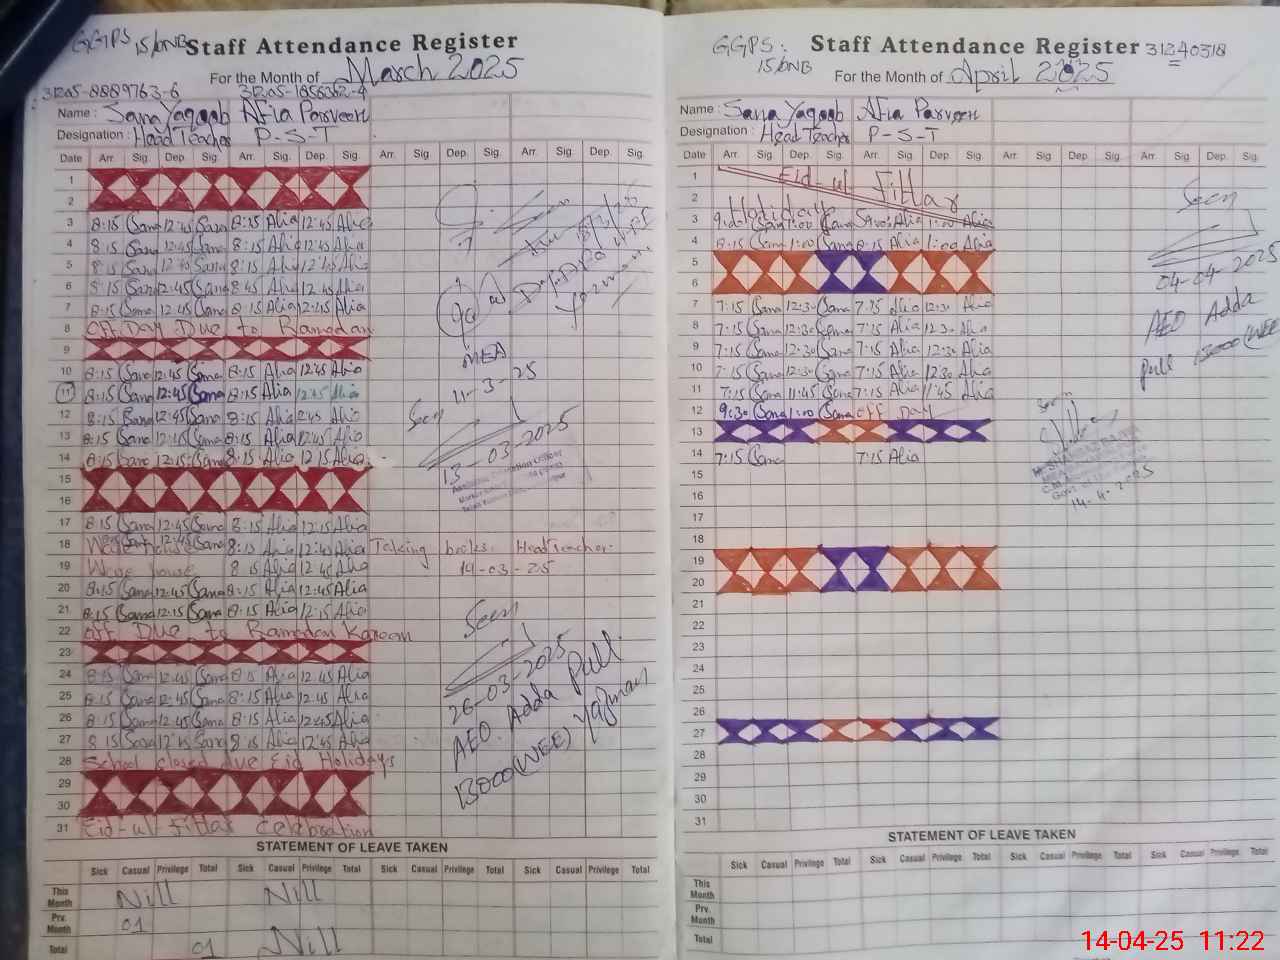 GGPS 15/DNB
Staff Attendance Register
For the Month of March 2025
Name : Sana Yaqoob Afia Parveen
Designation : Head Teacher P-S-T
Date Arr. Sig. Dep. Sig. Arr. Sig. Dep. Sig. Arr. Sig. Dep. Sig. Arr. Sig. Dep. Sig.
1
2
3 8:15 Sana 12:45 Sana 8:15 Afia 12:45 Afia
4 8:15 Sana 12:45 Sana 8:15 Afia 12:45 Afia
5 8:15 Sana Sana 8:15 Afia 12:45 Afia
6 8:15 Sana 12:45 Sana Afia 12:45 Afia
7 8:15 Sana 12:45 Sana 8:15 Afia 12:45 Afia
8 Off Day Due to Ramadan
9
10 8:15 Sana 12:45 Sana 8:15 Afia 12:45 Afia
11 8:15 Sana 12:45 Sana 8:15 Afia 12:45 Afia
12 8:15 Sana 12:45 Sana 8:15 Afia Afia
13 8:15 Sana Sana 8:15 Afia 12:45 Afia
14 8:15 Sana 12:15 Sana 8:15 Afia 12:15 Afia
15
16
17 8:15 Sana 12:45 Sana 8:15 Afia 12:15 Afia
18 8:15 Afia 12:45 Afia Taking books. Head Teacher.
19 8:15 Afia 12:45 Afia 19-03-25
20 8:15 Sana 12:45 Sana 8:15 Afia 12:45 Afia
21 8:15 Sana 12:15 Sana 8:15 Afia 12:15 Afia
22 off Due to Ramadan Kareem
23
24 8:15 Sana 12:45 Sana 8:15 Afia 12:45 Afia
25 8:15 Sana 12:45 Sana 8:15 Afia 12:45 Afia
26 8:15 Sana 12:45 Sana 8:15 Afia 12:45 Afia
27 8:15 Sana 12:45 Sana 8:15 Afia 12:45 Afia
28 School closed due Eid Holidays
29
30
31 Eid-ul-Fittar celebration
MEA
11-3-25
Seen
13-03-2025
Seen
26-03-2025
AEO. Adda Pull
13000(WEE)
STATEMENT OF LEAVE TAKEN
Sick Casual Privilege Total Sick Casual Privilege Total Sick Casual Privilege Total Sick Casual Privilege Total
This Month Nill Nill
Prv. Month 01
Total 01 Nill
GGPS.
15/DNB
Staff Attendance Register 31240318
For the Month of April 2025
Name : Sana Yaqoob Afia Parveen
Designation : Head Teacher P-S-T
Date Arr. Sig. Dep. Sig. Arr. Sig. Dep. Sig. Arr. Sig. Dep. Sig. Arr. Sig. Dep. Sig.
1 Eid-ul Fittar
2 Holidays
3 9:00 Sana 1:00 Sana 9:00 Afia 1:00 Afia
4 8:15 Sana 1:00 Sana 8:15 Afia 1:00 Afia
5
6
7 7:15 Sana 12:30 Sana 7:15 Afia 12:30 Afia
8 7:15 Sana 12:30 Sana 7:15 Afia 12:30 Afia
9 7:15 Sana 12:30 Sana 7:15 Afia 12:30 Afia
10 7:15 Sana 12:30 Sana 7:15 Afia 12:30 Afia
11 7:15 Sana 11:45 Sana 7:15 Afia 11:45 Afia
12 9:30 Sana 1:00 Sana off Day
13
14 7:15 Sana 7:15 Afia
15
16
17
18
19
20
21
22
23
24
25
26
27
28
29
30
31
Seen
04-04-2025
AEO Adda
Pull 13000(WEE)
Seen
14-4-2025
STATEMENT OF LEAVE TAKEN
Sick Casual Privilege Total Sick Casual Privilege Total Sick Casual Privilege Total Sick Casual Privilege Total
This Month
Prv. Month
Total
14-04-25 11:22